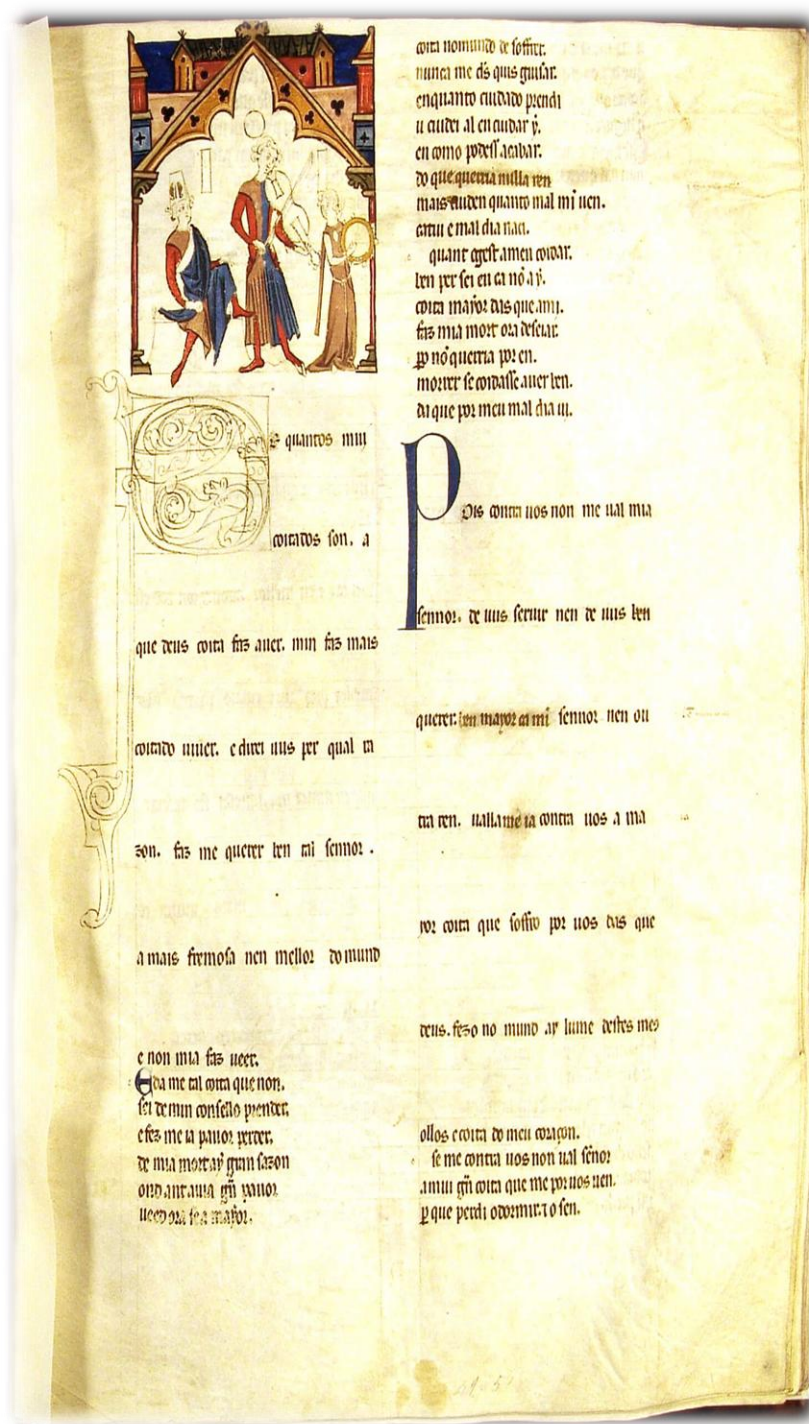 e quantos mui
coitados son. a
que deus coita faz auer. min faz mais
coitado uiuer. e direi uus per qual ra
zon. faz me querer ben tal sennor.
a mais fremosa nen mellor do mund
e non mia faz ueer.
E da me tal coita que non.
sei de min consello prender.
e fez me ia pauor perder.
de mia mort aẏ gran sazon
ond ant auia gñ pauor
ueed ora se a maẏor.
coita no mundo de soffrer.
nunca me d̃s quis guisar.
en quanto cuidado prendi
u cuidei al en cuidar ẏ.
en como podess acabar.
do que querria nulla ren
mais cuid en quanto mal mi uen.
catiu e mal dia naci.
quant e gest a meu coidar.
ben per sei eu ca nõ a ẏ.
coita maẏor das que a mi.
faz mia mort ora deseiar.
ꝑo nõ querria por en.
morrer se coidasse auer ben.
da que por meu mal dia ui.
Pois contra uos non me ual mia
sennor. de uus seruir nen de uus ben
querer. ben mayor ca mĩ sennor nen ou
tra ren. ualla mẽ ia contra uos a ma
yor coita que soffro por uos das que
deus. fezo no mund ay lume destes meꝯ
ollos e coita do meu coraçon.
se me contra uos non ual sẽnor
a mui gñ coita que me por uos uen.
ꝑ que perdi o dormir. ⁊ o sen.